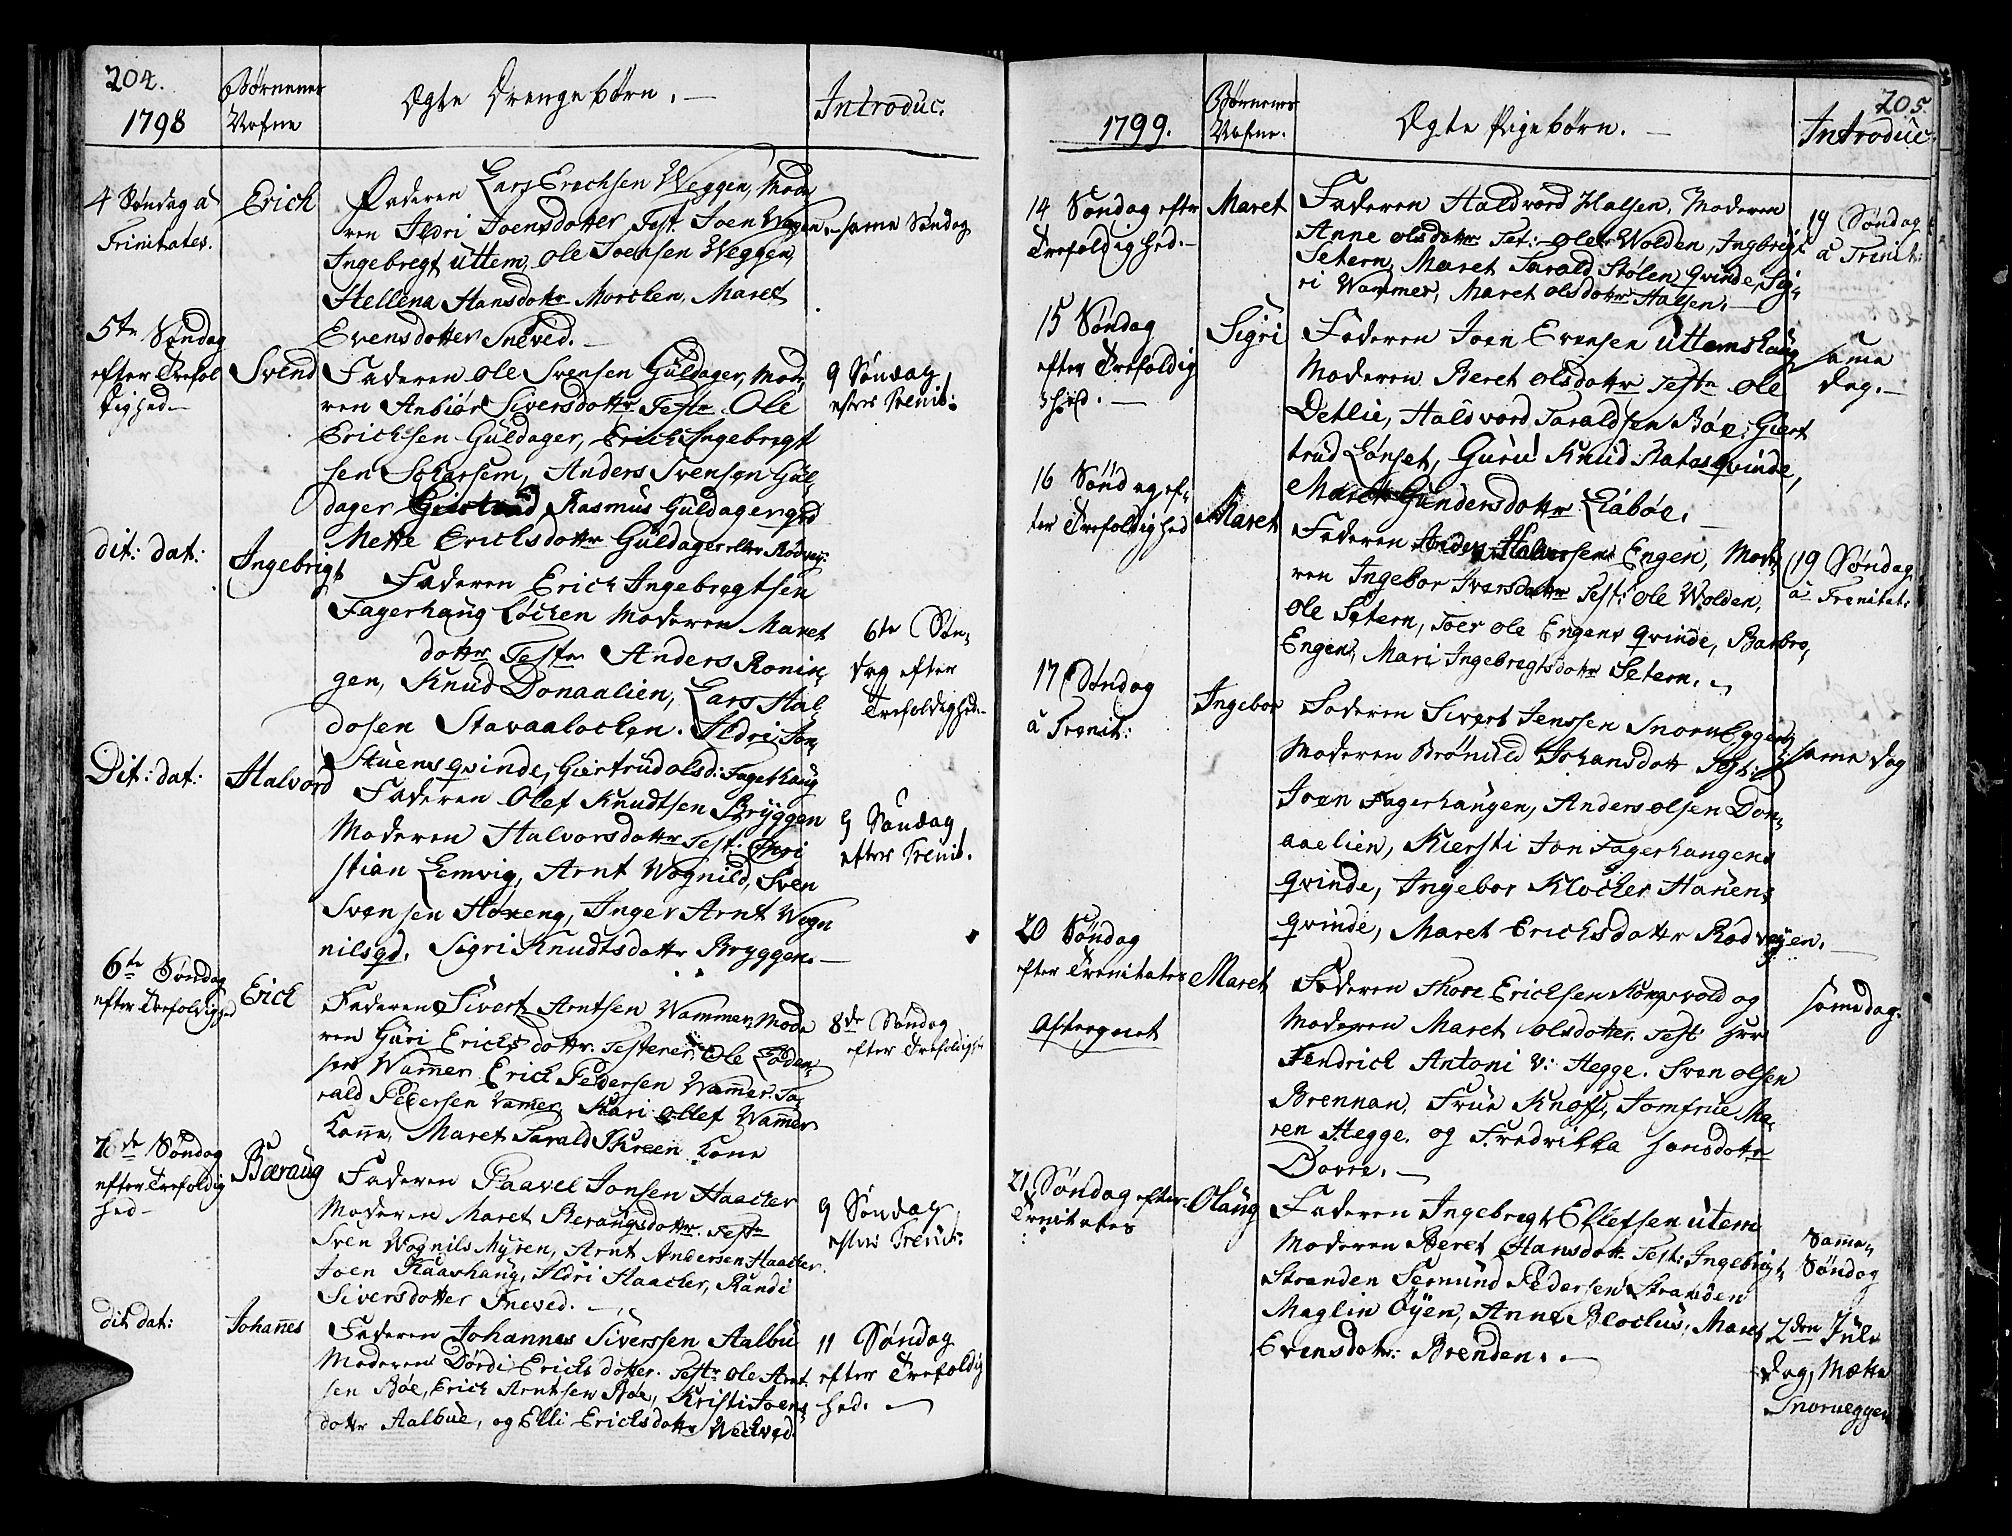 204.
1798
Børnenes
Nafne
Ægte Drengebørn. —
Introduc.
4 Søndag a
Trinitates.
Erich
Faderen Lars Erichsen Weggen, Mode
ren Ildri Joensdotter Test. Joen Weggen
Ingebregt Uttem, Ole Joensen Weggen,
Hellena Hansdottr Morcken, Maret
Evensdotter Sneved. —
same Søndag
5te Søndag
efter Trefol
dighed —
Svend
Faderen Ole Svensen Guldager, Mode
ren Anbiør Siversdottr Testr Ole
Erichsen Guldager, Erich Ingebregt
sen, Anders Svensen Gul-
dager, Rasmus Guldagers qvd
Mette Erichsdottr Guldager eller
9 Søndag
efter Trenit:
dit: dat:
Ingebrigt
Faderen Erich Ingebregtsen
Fagerhaug Løcken Moderen Maret
dottr Testr Anders Ronin-
gen, Knud Donaalien, Lars Hal
dosen Stavaalocken. Ildri Jon
Stuens qvinde, Giertrud olsd: Fagerhaug
6te Søn-
dag efter
Trefoldighed. —
Dit: dat:
Halvord
Faderen Olef Knudtsen Bryggen
Moderen Halvorsdottr Test: Chri
stian Lemvig, Arnt Wognild, Sven
Svensen Høxeng, Inger Arnt Wogn
nilsqd. Sigri Knudtsdottr Bryggen. —
9 Søndag
efter Trenit.
6te Søndag
efter Trefoldighed
Erich
Faderen Sivert Arntsen Wammer, Mode
ren Guri Erichsdottr. Testener Ole Loden-
Wamer Erich Pedersen Wamer. Ta
rald Pedersen Wamer Kari Ollef Wamer
Kone, Maret Tarald Skreen Kone
8de Søndag
efter Trefoldigh
7de Søndag
efter Trefoldig
hed —
Bæraug
Faderen Paavel Jonsen Haacker
Moderen Maret Beraugsdottr. Testr
Sven Wognils Myren, Arnt Andersen Haacker.
Joen Kaashaug, Ildri Haacker, Randi
Siversdotter Sneved. —
9 Søndag
efter Trenit:
dit dat:
Johanes
Faderen Johannes Siverssen Aalbu
Moderen Dordi Erichsdotter. Testr Ole Arnt
sen Bøe, Erich Arntsen Bøe, Kristi Joens
dottr Aalbue, og Elli Erichsdottr Weckved.
11 Søndag
efter Trefoldig
hed. —
205
1799.
Børnenes
Nafne.
Ægte Pigebørn. —
Introduc.
14 Søndag eftr
Trefoldighed. —
Maret
Faderen Haldvord Halsen, Moderen
Anne olsdottr Test: Ole Wolden, Ingbrigt
Setern, Maret Tarald Stølen qvinde, Sig-
ri Wammer, Maret olsdottr Halsen. —
19 Søndag
a Trenit:
15 Søndag
efter Trefoldig
hed. —
Sigri
Faderen Joen Evensen Uttemshaug
Moderen Beret olsdottr Testr Ole
Detlie, Haldvord Taraldsen Bøe, Giert
trud Lønset, Guru Knud Ratas qvinde,
Maret Gundersdottr Liabøe. —
same
dag. —
16 Søndag ef-
ter Trefoldighed
Maret
Faderen Anders Halvorsen Engen, Mode-
ren Ingebor Iversdottr Test: Ole Wolden,
Ole Setern, Toer Ole Engens qvinde, Barbro,
Engen, Mari Ingebregtsdottr Setern. —
19 Søndag
a Trenitat:
17 Søndag
a Trenit:
Ingebor
Faderen Sivert Jenssen Snoeneggen,
Moderen Brønild Johansdottr Test:
Joen Fagerhaugen, Anders olsen Don-
aaelien, Kiersti Jon Fagerhaugens
qvinde, Ingebor Klocker Hanens
qvinde, Maret Erichsdottr Rodveyen. —
same dag
20 Søndag
efter Trenitates
Aftergnet
Maret
Faderen Thore Ericksen Kongsvold og
Moderen Maret olsdotter. Test Herr
Fendrick Antoni v: Hegge. Sven olsen
Brennan, Frue Knoff, Jomfrue Ma-
ren Hegge. og Fredrikka Hansdottr
Dovre. —
samedag.
21 Søndag efter
Trenitates
Olaug
Faderen Ingebregt Ellefsen Utem
Moderen Beret Hansdott Test: Ingebrigt
Stranden Sermund Pedersen Stranden
Maglin Øyen, Anne Bloclus, Maret
Evensdotr: Brenden. —
Samme
Søndag
2den Jule
dag, Mætte
Snoeneggen